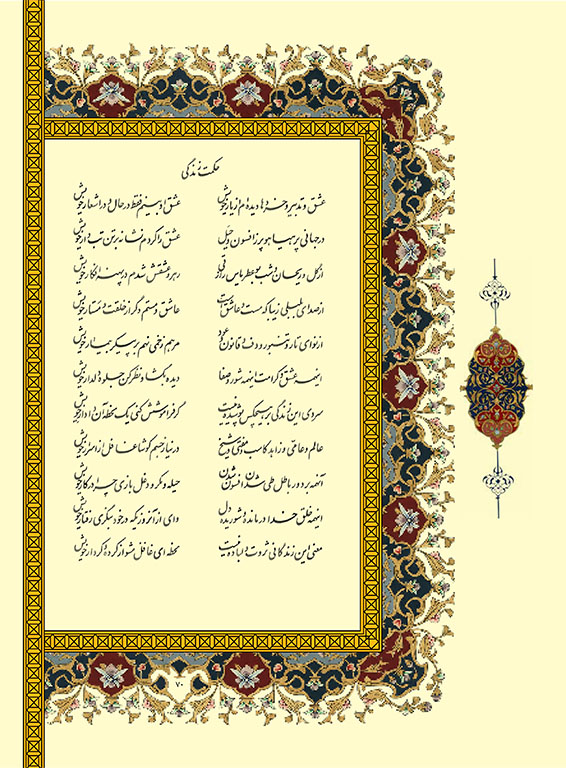 حکمت زندگی
عشق و تدبیر و خدا دیده‌ام زیار خویش عشق او بینم فقط در حال و در اشعار خویش
در جهانی پر هیاهو پر ز افسون و حیل عشق را کردم نشانه بر تن تب‌دار خویش
از گل و ریحان و شب بو عطر یاس رازقی رهرو عشقش شدم در پهنه افکار خویش
از صدای بلبلی زیبا که مست و عاشق است عاشق و مستم دگر از خلقت و ستار خویش
از نوای تار و تنبور و دف و قانون و عود مرهم زخمی نهم بر پیکر بیمار خویش
اینهمه عشق و کرامت اینهمه شور و صفا دیده بگشا و نظر کن جلوه دلدار خویش
سردی این زندگی بر هیچکس پوشیده نیست گر فراموشش کنی یک لحظه آن دادار خویش
عالم و عامی و زاهد کاسب و مفتی و شیخ در نیاز جسم کوشا غافل از اسرار خویش
آنهمه بر دور باطل طی شدن افسون شدن حیله و مکر و دغل بازی چرا در کار خویش
اینهمه خلق خدا درمانده و شوریده دل وای از آنروزیکه درخود بنگری رفتار خویش
معنی این زندگانی ثروت و لباده نیست لحظه‌ای غافل شو از کرده و کردار خویش
۷۰